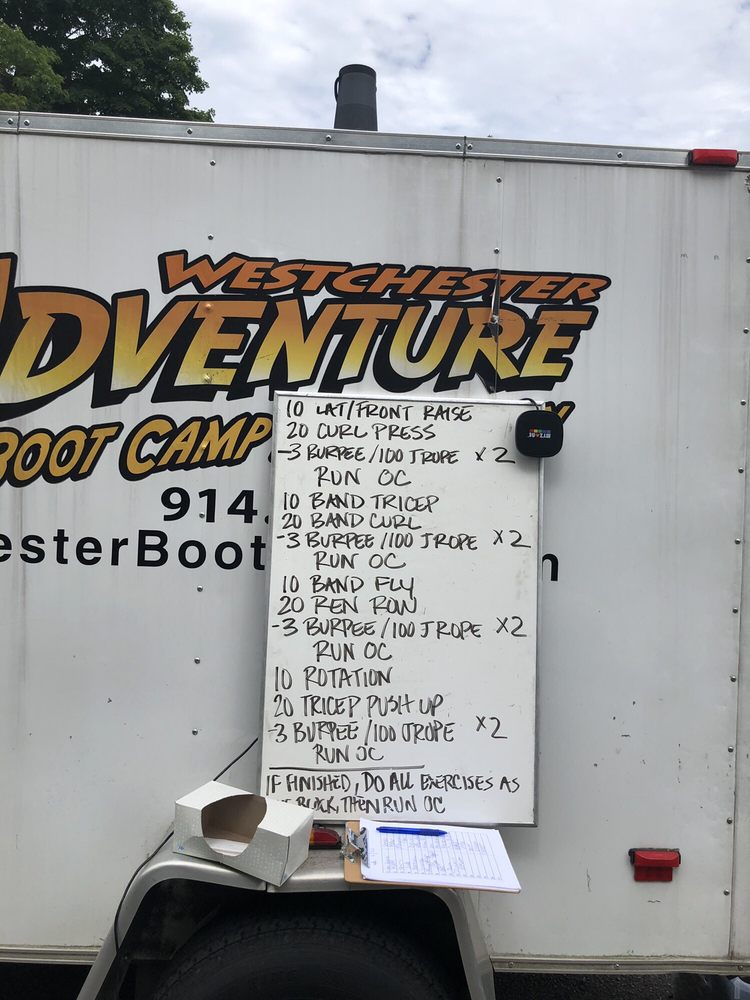 WESTCHESTER
ADVENTURE
BOOT CAMP
914.
esterBoot
10 LAT/FRONT RAISE
20 CURL PRESS
-3 BURPEE/100 JROPE x2
RUN OC
10 BAND TRICEP
20 BAND CURL
-3 BURPEE/100 JROPE x2
RUN OC
10 BAND FLY
20 REN ROW
-3 BURPEE/100 JROPE x2
RUN OC
10 ROTATION
20 TRICEP PUSH UP
-3 BURPEE/100 JROPE x2
RUN OC
IF FINISHED, DO ALL EXERCISES AS
BLOCK, THEN RUN OC